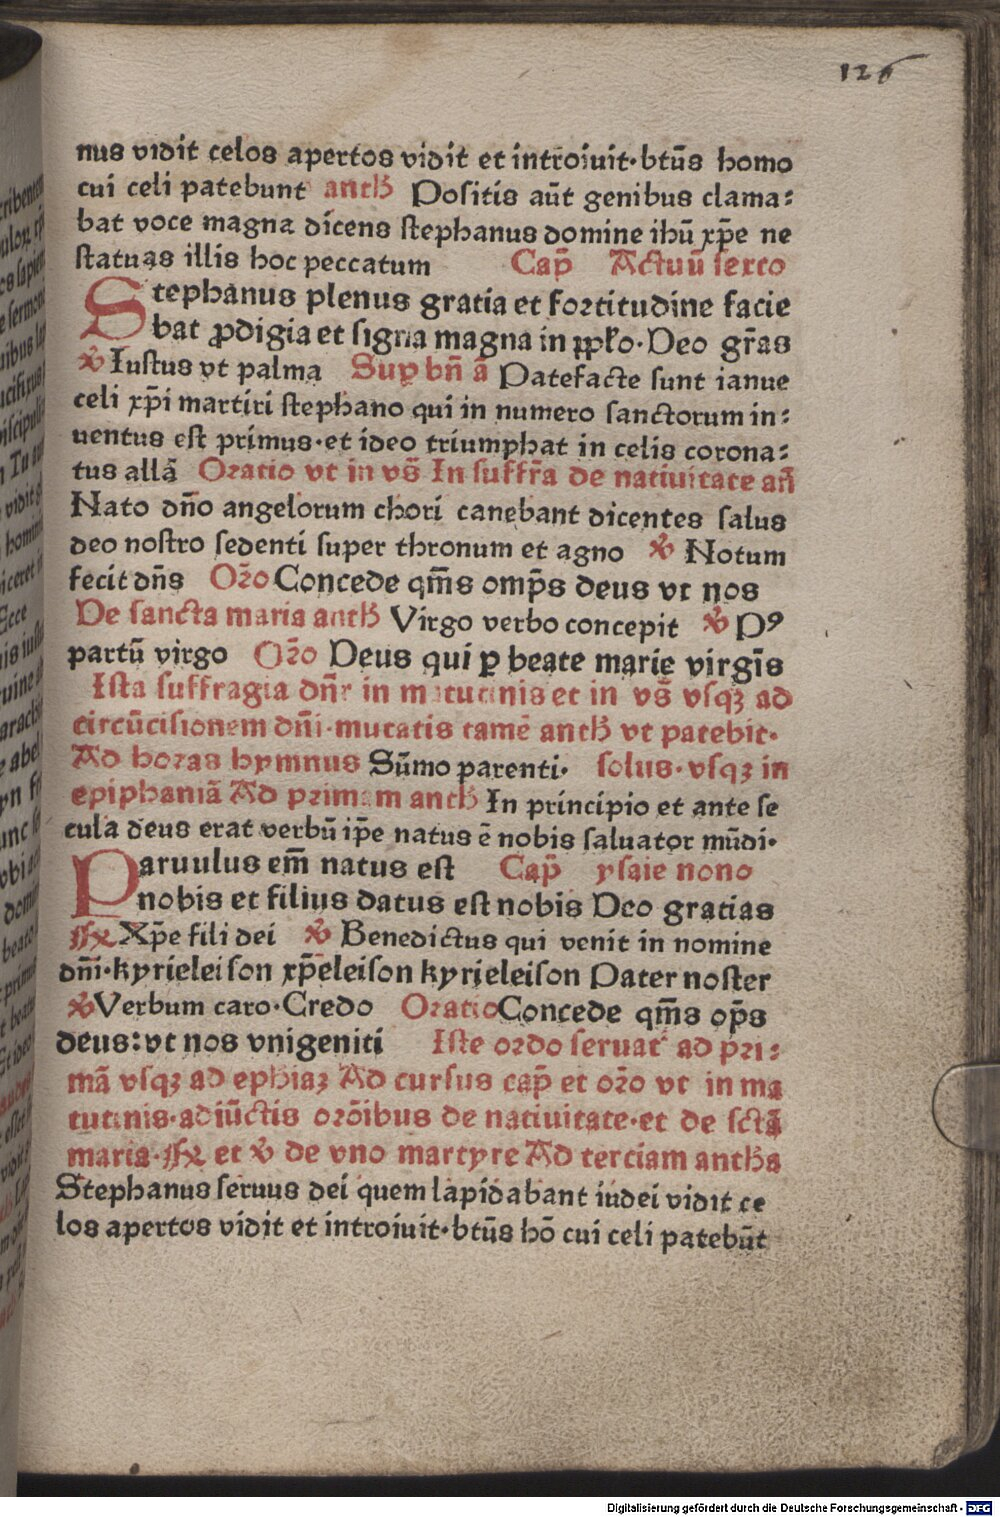 126
nus vidit celos apertos vidit et introiuit·btūs homo
cui celi patebunt anth Positis aūt genibus clama:
bat voce magna dicens stephanus domine ihū xp̄e ne
statuas illis hoc peccatum Cap̄ Actuū sexto
Stephanus plenus gratia et fortitudine facie
bat ꝓdigia et signa magna in ppło·Deo gr̄as
℣ Iustus vt palma Suꝑ bn̄ ā Patefacte sunt ianue
celi xp̄i martiri stephano qui in numero sanctorum in:
uentus est primus·et ideo triumphat in celis corona:
tus allā Oratio vt in vs̄ In suffr̄a de natiuitate an̄
Nato dn̄o angelorum chori canebant dicentes salus
deo nostro sedenti super thronum et agno ℣ Notum
fecit dn̄s Or̄o Concede qm̄s omp̄s deus vt nos
De sancta maria anth Virgo verbo concepit ℣ Pꝰ
partū virgo Or̄o Deus qui ꝑ beate marie virgīs
Ista suffragia dn̄r in matutinis et in vs̄ vsqꝫ ad
circūcisionem dn̄i·mutatis tamē anth vt patebit·
Ad horas hymnus Sūmo parenti· solus·vsqꝫ in
epiphaniā Ad primam anth In principio et ante se
cula deus erat verbū ip̄e natus ē nobis saluator mūdi·
Paruulus em̄ natus est Cap̄ ysaie nono
nobis et filius datus est nobis Deo gratias
℟ Xp̄e fili dei ℣ Benedictus qui venit in nomine
dn̄i·kyrieleison xp̄eleison kyrieleison Pater noster
℣ Verbum caro·Credo Oratio Concede qm̄s op̄s
deus:vt nos vnigeniti Iste ordo seruat᷑ ad pri:
mā vsqꝫ ad ephiaꝫ Ad cursus cap̄ et or̄o vt in ma
tutinis·adiūctis orōibus de natiuitate·et de sctā
maria·℟ et ℣ de vno martyre Ad terciam anths
Stephanus seruus dei quem lapidabant iudei vidit ce
los apertos vidit et introiuit·btūs hō cui celi patebūt
Digitalisierung gefördert durch die Deutsche Forschungsgemeinschaft - DFG